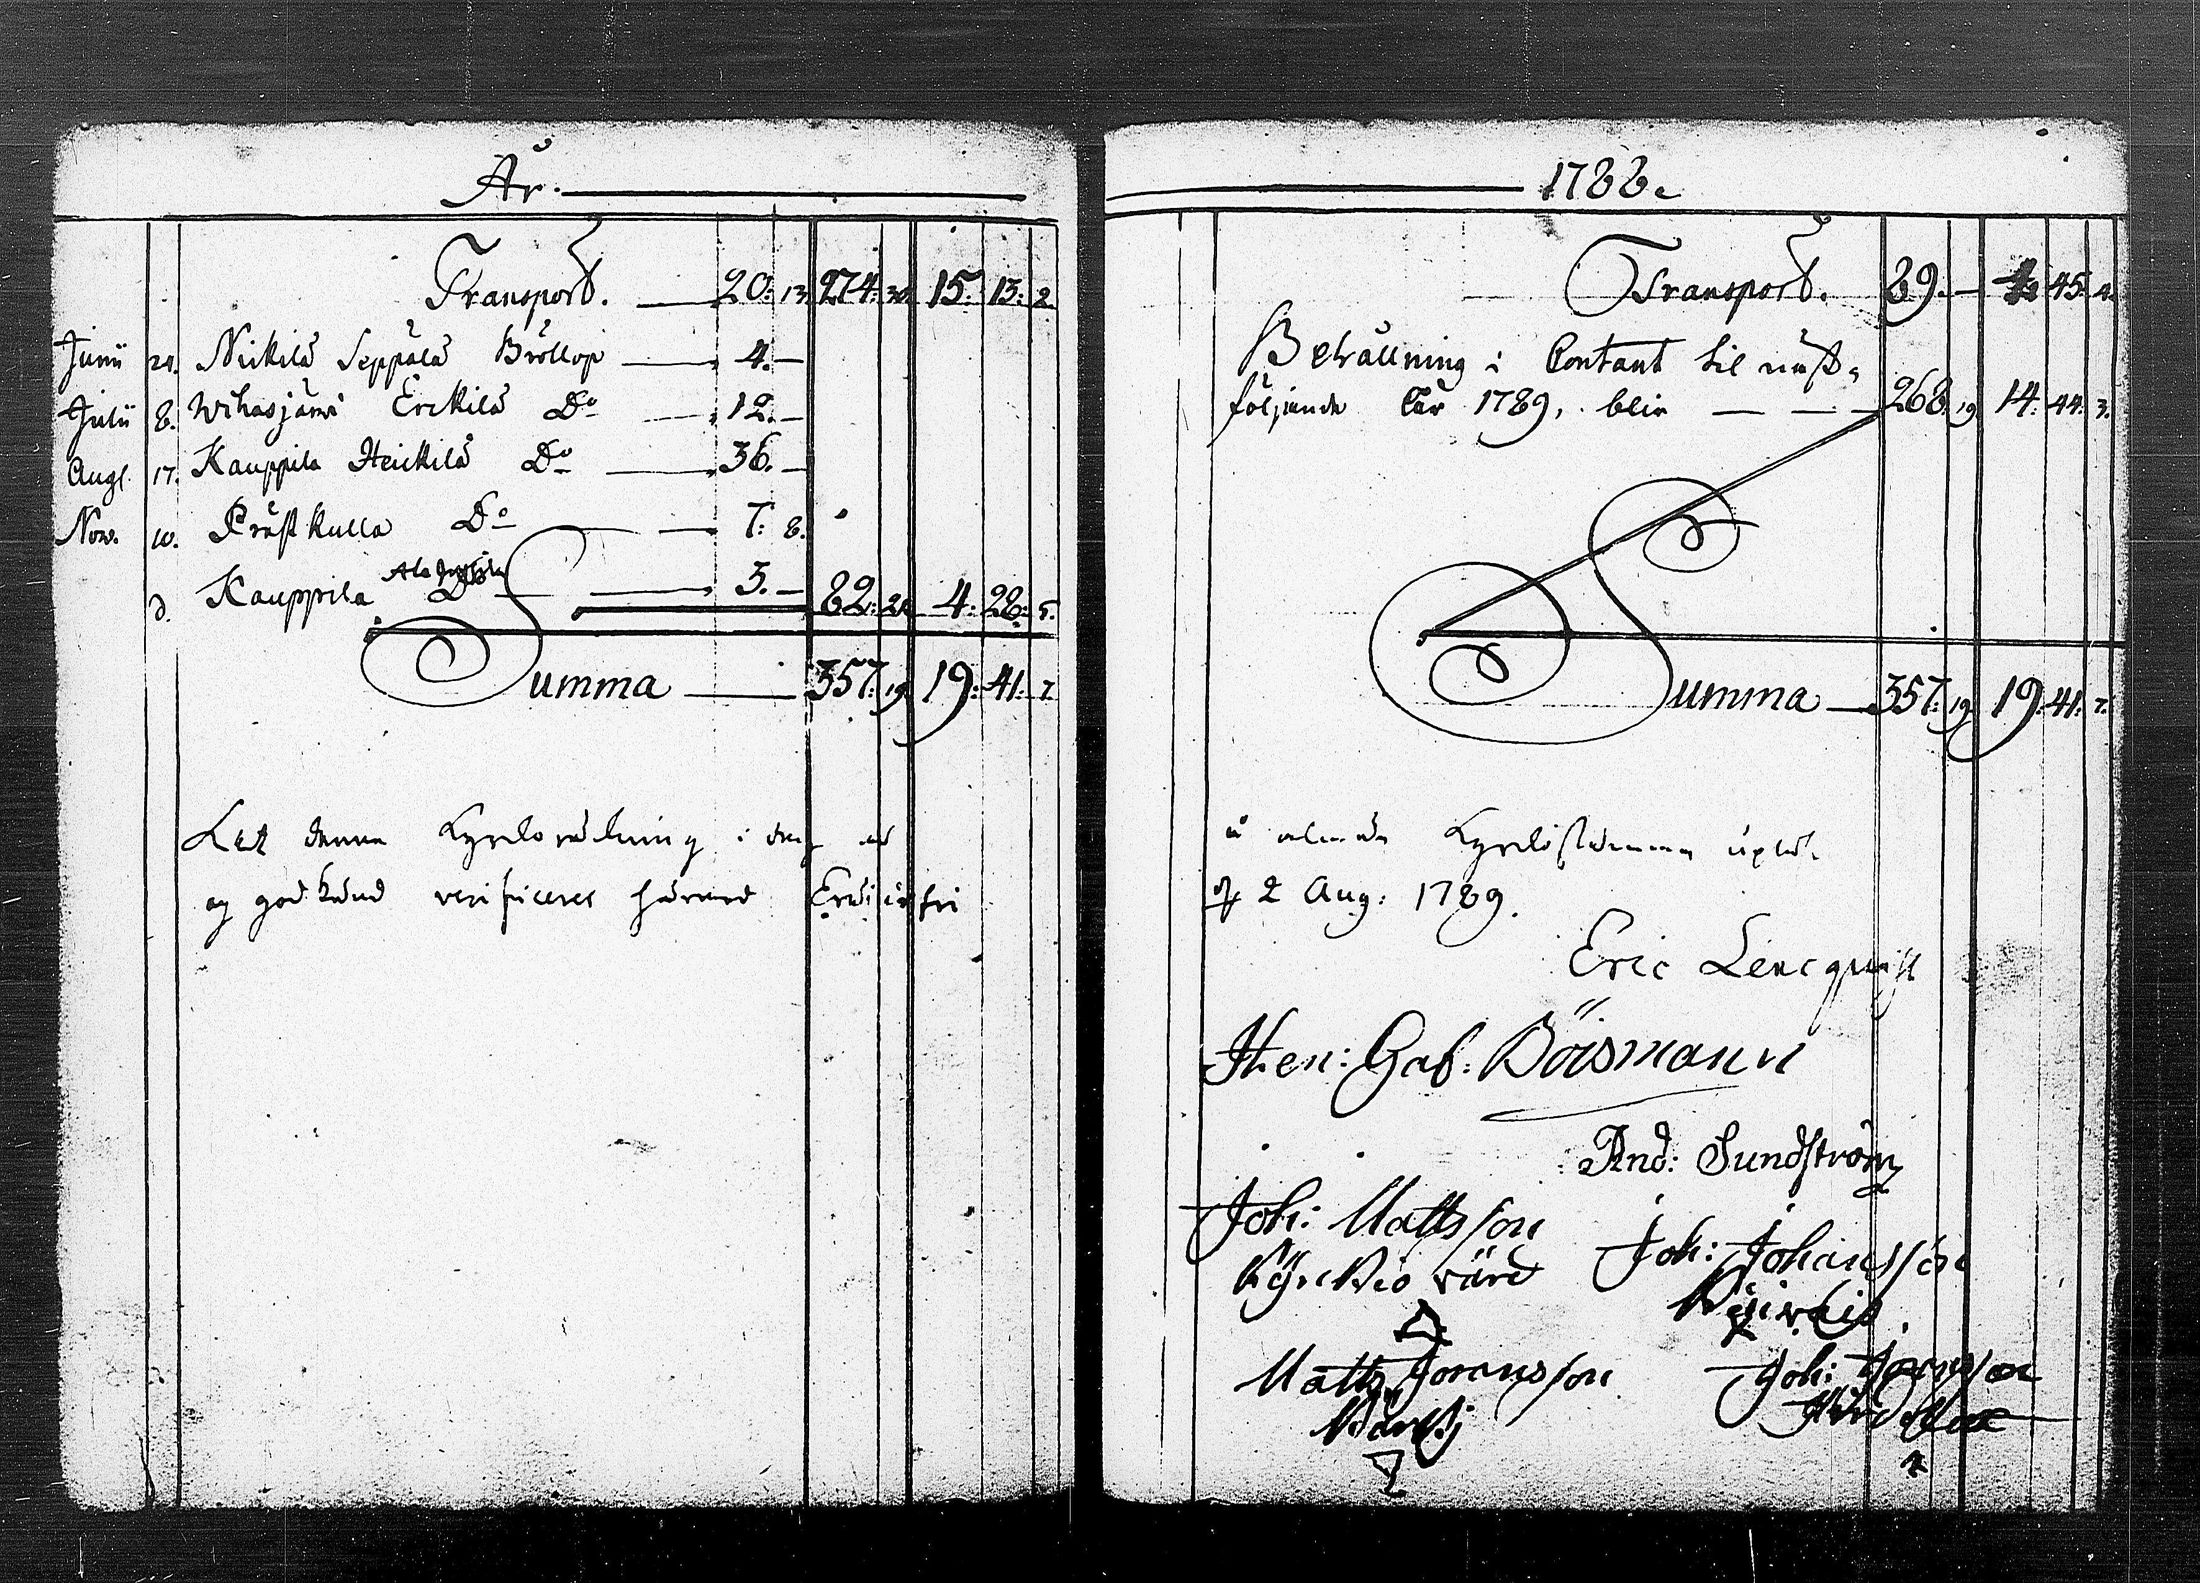 År. 1788.
Transport. 20: 13. 274: 15: 13: 2.
Junii 24. Nickilä Seppälä Bröllop 4. —
Julii 8. Wihasjärvi Erckilä Do 12. —
Aug. 17. Kauppila Heickilä Do 36. —
Nov. 10. Präst kulla Do 7: 8.
d. Kauppila Do 3. — 82: 4: 28: 5.
Summa 357: 19. 19: 41: 7.
Let denna Kyrckoräkning i dag
och godkänd verificeres härmed
Transport. 89. — 45. 4.
Behållning i Contant til näst-
följande År 1789, blir — — — 268. 19. 14: 44: 3.
Summa 357: 19. 19: 41: 7.
å Kyrckostämma
2 Aug: 1789.
Eric Lencqvist
Hen: Gab: Böismann
And: Sundström
Joh: Mattsson Joh: Johansson
Kyrckio värd
Matts Joransson Joh: